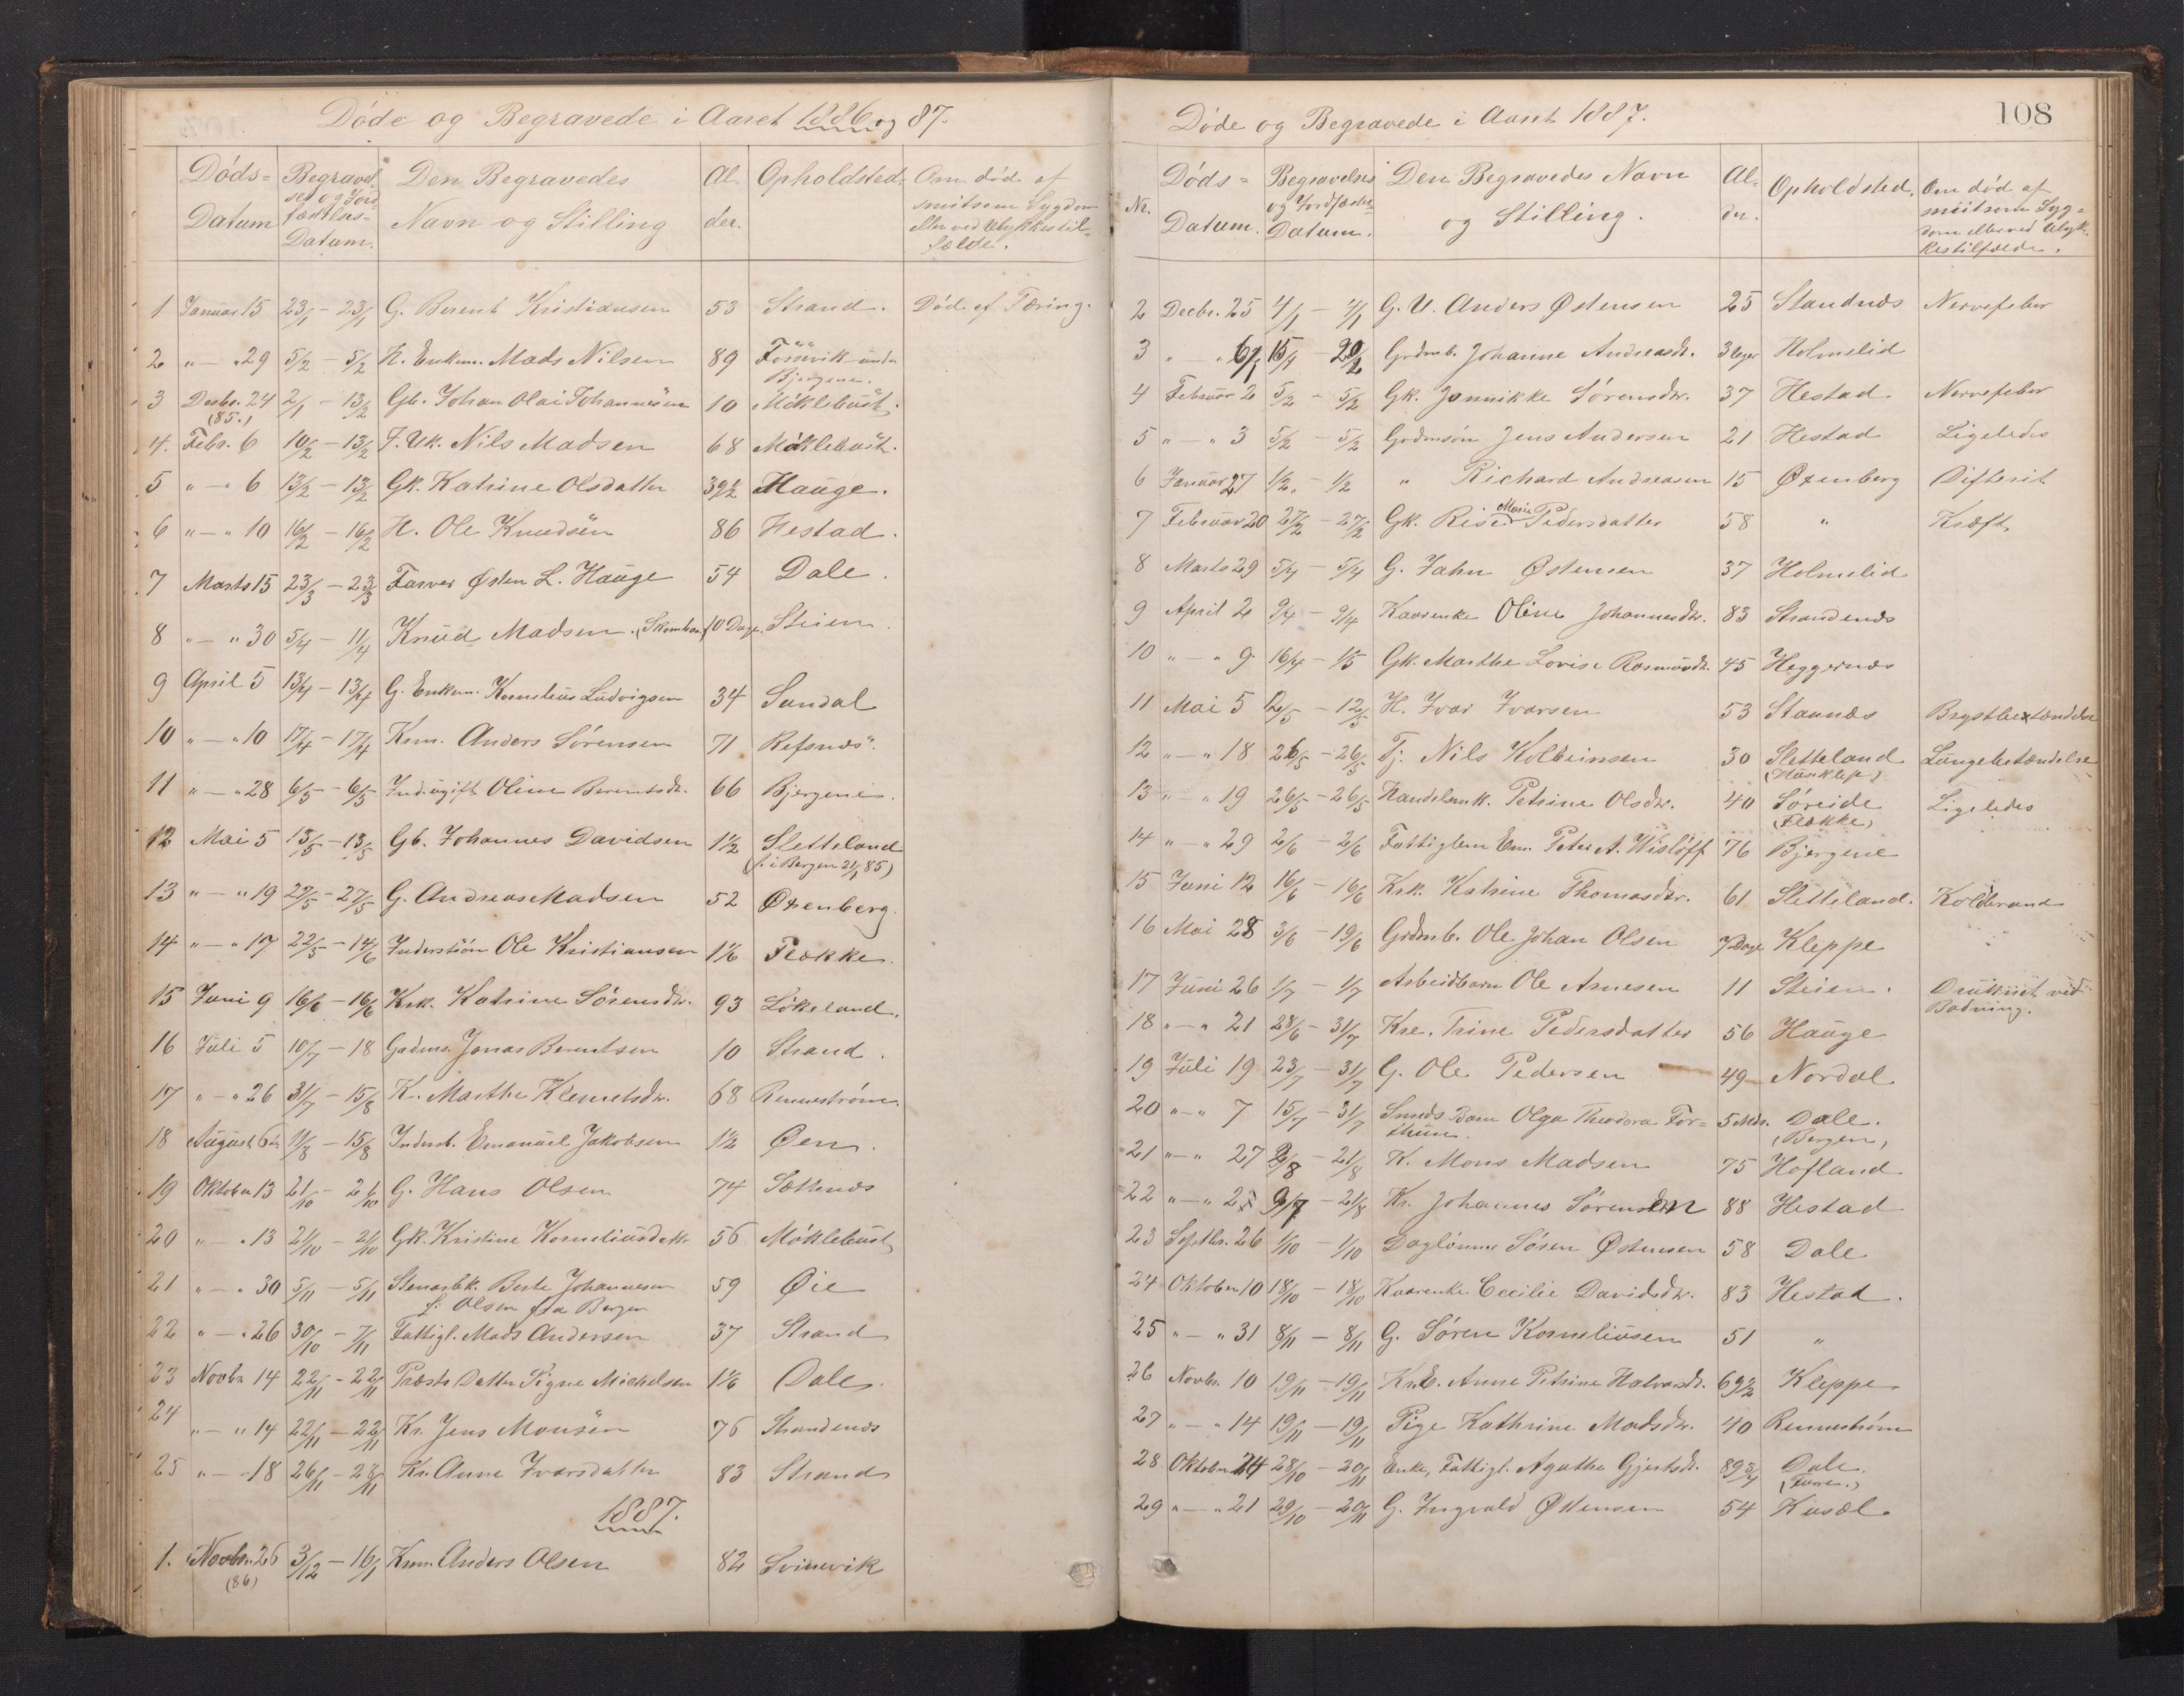 Døde og Begravede i Aaret 1886 og 87.
Døds= Datum
Begravel- ses og Jord- fæstelses- Datum.
Den Begravedes Navn og Stilling
Al- der.
Opholdsted.
Om død af smitsom Sygdom eller ved Ulykkestil- fælde.
1 Januar 15 23/1 - 23/1 G. Berent Kristiansen 53 Strand. Død af Tæring.
2 " — " 29 5/2 - 5/2 K. Enkem. Mads Nilsen 89 Fossevik under
Bjergene.
3 Decbr. 24 2/1 - 13/2 Gb. Johan Olai Johannesen 10 Møklebust.
(85.)
4. Febr. 6 10/2 - 13/2 F. Uk. Nils Madsen 68 Møklebust.
5 " — " 6 13/2 - 13/2 Gk. Katrine Olsdatter 39 1/2 Hauge.
6 " — " 10 16/2 - 16/2 H. Ole Knudsen 86 Hestad.
7 Marts 15 23/3 - 23/3 Farver Østen L. Hauge 54 Dale.
8 " — " 30 5/4 - 11/4 Knud Madsen. 10 Dage. Steien.
9 April 5 13/4 - 13/4 G. Enkem. Kornelius Ludvigsen 34 Sandal
10 " — " 10 17/4 - 17/4 Krm. Anders Sørensen 71 Refsnæs.
11 " — " 28 6/5 - 6/5 Ind. ugift Oline Berentsdr. 66 Bjergene.
12 Mai 5 13/5 - 13/5 Gb. Johannes Davidsen 1 1/2 Sletteland
(f. i Bergen 21/1 85)
13 " — " 19 27/5 - 27/5 G. Andreas Madsen 52 Øxenberg.
14 " — " 17 22/5 - 14/6 Indersøn Ole Kristiansen 1 1/6 Flekke.
15 Juni 9 16/6 - 16/6 Krk. Katrine Sørensdr. 93 Løkeland.
16 Juli 5 10/7 - 18 Gadms. Jonas Berentsen 10 Strand.
17 " — " 26 31/7 - 15/8 K. Marthe Klemetsdr. 68 Rennestrøm.
18 August 6 11/8 - 15/8 Inderst. Emanuel Jakobsen 1 1/2 Øen.
19 Oktober 13 21/10 - 21/10 G. Hans Olsen 74 Sætenes
20 " — " 13 21/10 - 21/10 Gk. Kristine Korneliusdatr 56 Møklebust
21 " — " 30 5/11 - 5/11 Stenarbk. Berte Johannesen 59 Øie
f. Olsen fra Bergen
22 " — " 26 30/10 - 7/11 Fattigl. Mads Andersen 37 Strand
23 Novbr 14 22/11 - 22/11 Præsts Datter Signe Michelsen 1 1/6 Dale.
24 " — " 14 22/11 - 22/11 Kr. Jens Monsen 76 Strandenes
25 " — " 18 26/11 - 28/11 Kr. Anne Ivarsdatter 83 Strand
1887.
1. Novbr. 26 3/12 - 16/1 Krm. Anders Olsen 82 Svinevik
(86)
108
Døde og Begravede i Aaret 1887.
Nr.
Døds= Datum.
Begravelses og Jordfæstel- Datum.
Den Begravedes Navn og Stilling.
Al- der.
Opholdsted.
Om død af smitsom Syg= dom eller ved Ulyk- kestilfælde.
2 Decbr. 25 4/1 - 4/1 G. U. Anders Østensen 25 Standnæs Nervefeber
3 " — " 6/1 15/1 - 20/2 Grdmb. Johanne Andreasdr. 3 Uger Holmelid
4 Februar 2 5/2 - 5/2 Gk. Jannikke Sørensdr. 37 Hestad Nervefeber
5 " — " 3 5/2 - 5/2 Grdmsøn Jens Andersen 21 Hestad Ligeledes
6 Januar 27 1/2 - 1/2 " Richard Andreasen 15 Øxenberg Difterit
7 Februar 20 27/2 - 27/2 Gk. Rise Marie Pedersdatter 58 " Kræft
8 Marts 29 5/4 - 5/4 G. Jahn Østensen 37 Holmelid
9 April 2 9/4 - 9/4 Kaarenke Oline Johannesdr. 83 Strandenæs
10 " — " 9 16/4 - 1/5 Gk. Marthe Lovise Rasmusdr. 45 Heggernæs
11 Mai 5 12/5 - 12/5 H. Ivar Ivarsen 53 Stannæs Brystbetændelse
12 " — " 18 26/5 - 26/5 Tj. Nils Kolbeinsen 30 Sletteland Lungebetændelse
13 " — " 19 26/5 - 26/5 Handelsmk. Petrine Olsdr. 40 Søreide Ligeledes
(Flekke)
14 " — " 29 2/6 - 2/6 Fattiglem Em. Peter A. Wisløff 76 Bjergene
15 Juni 12 16/6 - 16/6 Krk. Katrine Thomasdtr. 61 Sletteland. Koldbrand
16 Mai 28 3/6 - 19/6 Grdmb. Ole Johan Olsen 7 Dage Kleppe
17 Juni 26 1/7 - 1/7 Arbeidbarn Ole Arnesen 11 Steien. Druknet ved
Badning.
18 " — " 21 28/6 - 31/7 Kre. Trine Pedersdatter 56 Hauge
19 Juli 19 23/7 - 31/7 G. Ole Pedersen 49 Nordal
20 " — " 7 15/7 - 31/7 Smeds Barn Olga Theodora For= 5 Mdr. Dale.
thun. (Bergen)
21 " — " 27 2/8 - 21/8 K. Mons Madsen 75 Hofland
22 " — " 9/7 - 21/8 Kr. Johannes Sørensen 88 Hestad
23 Septbr. 26 1/10 - 1/10 Daglønner Søren Østensen 58 Dale
24 Oktober 10 18/10 - 18/10 Kaarenke Cecilie Davidsdr. 83 Hestad.
25 " — " 31 8/11 - 8/11 G. Søren Korneliusen 51 "
26 Novbr. 10 19/11 - 19/11 Kr.E. Anne Petrine Halvorsdr. 69 1/2 Kleppe
27 " — " 14 19/11 - 19/11 Pige Kathrine Madsdr. 40 Rennestrøm
28 Oktober 24 28/10 - 20/11 Enke, Fattigl. Agathe Gjertsdr. 89 3/4 Dale.
(Fure.)
29 " — " 21 29/10 - 20/11 G. Ingvald Østensen 54 Husæl.